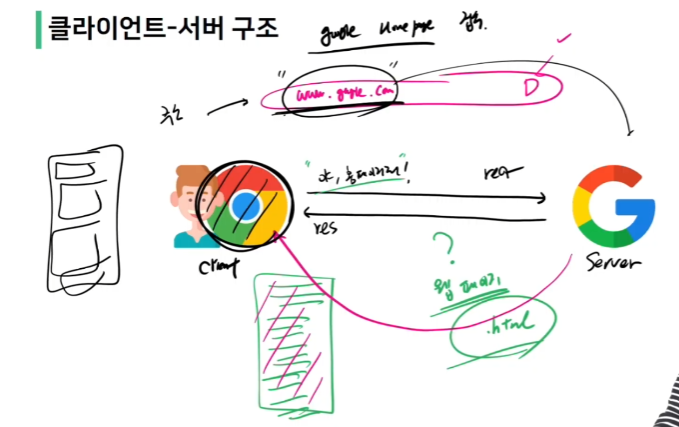 클라이언트-서버 구조
google Home page 접속.
" www.google.com "
주소
"야, 홈페이지!"
req
res
client
Server
?
웹 페이지
.html